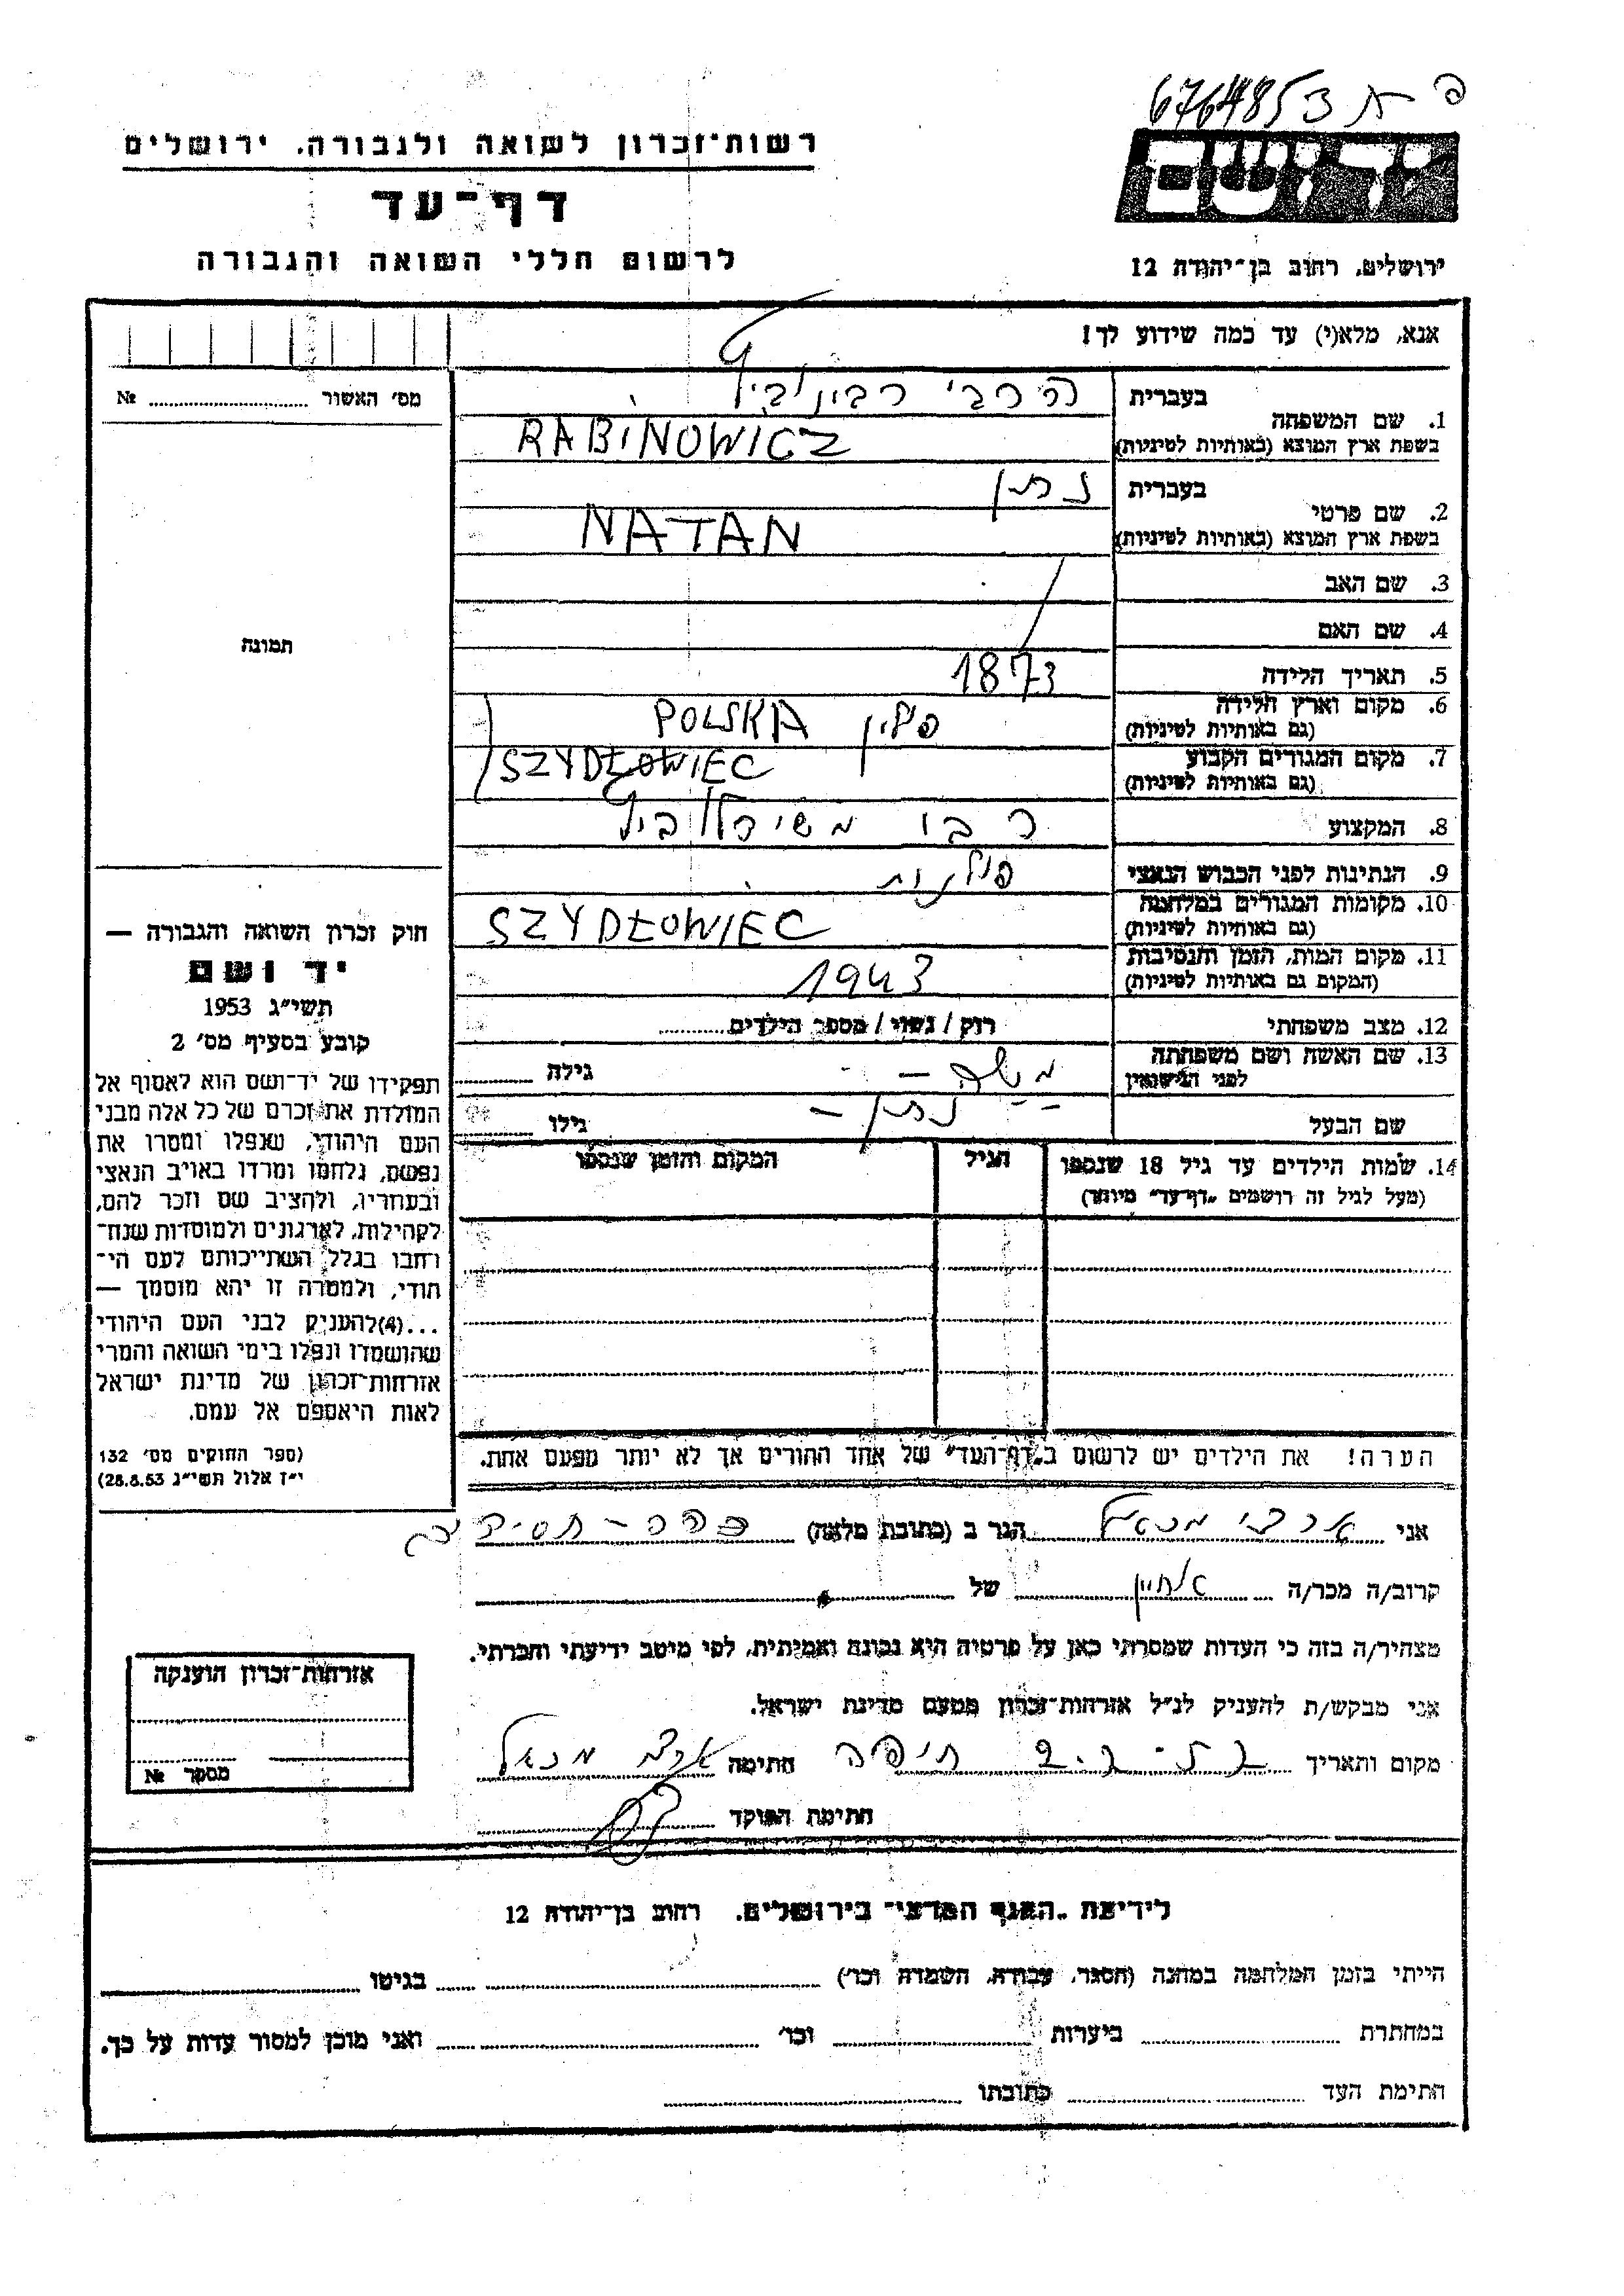 פ ת 3 6764853
רשות־זכרון לשואה ולגבורה. ירושלים
דף־עד
לרשום חללי השואה והגבורה
יד ושם
ירושלים, רחוב בן־יהודה 12
אנא, מלא(י) עד כמה שידוע לך!
מס' האשור № 
1. שם המשפחה
בעברית
הרבי רבינוביץ
בשפת ארץ המוצא (באותיות לטיניות)
RABINOWICZ
2. שם פרטי
בעברית
נתן
בשפת ארץ המוצא (באותיות לטיניות)
NATAN
3. שם האב
4. שם האם
5. תאריך הלידה
1873
6. מקום וארץ הלידה
(גם באותיות לטיניות)
פולין POLSKA
7. מקום המגורים הקבוע
(גם באותיות לטיניות)
SZYDŁOWIEC
8. המקצוע
רבי
9. הנתינות לפני הכבוש הנאצי
פולנית
10. מקומות המגורים במלחמה
(גם באותיות לטיניות)
SZYDŁOWIEC
11. מקום המות, הזמן והנסיבות
(המקום גם באותיות לטיניות)
1943
12. מצב משפחתי
רווק / נשוי / מספר הילדים
13. שם האשה ושם משפחתה
לפני הנישואין
גילה
שם הבעל
נתן –
גילו
14. שמות הילדים עד גיל 18 שנספו
(מעל לגיל זה רושמים „דף־עד" מיוחד)
הגיל
המקום והזמן שנספו
הערה! את הילדים יש לרשום ב„דף־העד" של אחד ההורים אך לא יותר מפעם אחת.
תמונה
חוק זכרון השואה והגבורה —
יד ושם
תשי"ג 1953
קובע בסעיף מס' 2
תפקידו של יד־ושם הוא לאסוף אל
המולדת את זכרם של כל אלה מבני
העם היהודי, שנפלו ומסרו את
נפשם, נלחמו ומרדו באויב הנאצי
ובעוזריו, ולהציב שם וזכר להם,
לקהילות, לארגונים ולמוסדות שנח־
רבו בגלל השתייכותם לעם הי־
הודי, ולמטרה זו יהא מוסמך —
...(4) להעניק לבני העם היהודי
שהושמדו ונפלו בימי השואה והמרי
אזרחות־זכרון של מדינת ישראל
לאות היאספם אל עמם.
(ספר החוקים מס' 132
י"ז אלול תשי"ג 28.8.53)
אני ארצי מכאל הגר ב (כתובת מלאה) כפר־חסידים
קרוב/ה מכר/ה אחיין של
מצהיר/ה בזה כי העדות שמסרתי כאן על פרטיה היא נכונה ואמיתית, לפי מיטב ידיעתי והכרתי.
אני מבקש/ת להעניק לנ"ל אזרחות־זכרון מטעם מדינת ישראל.
מקום ותאריך חיפה חתימה ארצי מכאל
חתימת הפוקד
אזרחות־זכרון הוענקה
מספר №
לידיעת „האגף המדעי" בירושלים. רחוב בן־יהודה 12
הייתי בזמן המלחמה במחנה (הסגר, עבודה, השמדה וכו') בגיטו
במחתרת ביערות וכו' ואני מוכן למסור עדות על כך.
חתימת העד כתובתו